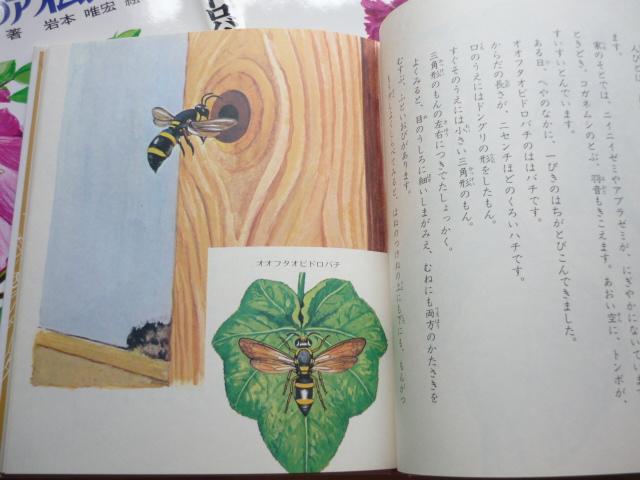 ファイム
著 岩本 唯宏 絵
ドロバ
ます。
家のそとでは、ニイニイゼミやアブラゼミが、にぎやかにないています
ときどき、コガネムシのとぶ、羽音もきこえます。あおい空に、トンボが、
すいすいとんでいます。
ある日、へやのなかに、一ぴきのはちがとびこんできました。
オオフタオビドロバチのははバチです。
からだの長さが、ニセンチほどのくろいハチです。
口のうえにはドングリの形をしたもん。
すぐそのうえには小さい三角形のもん。
三角形のもんの左右につきでたしょっかく。
よくみると、目のうしろに細いしまがみえ、むねにも両方のかたさきを
むすぶ、ふといおびがあります。
オオフタオビドロバチ